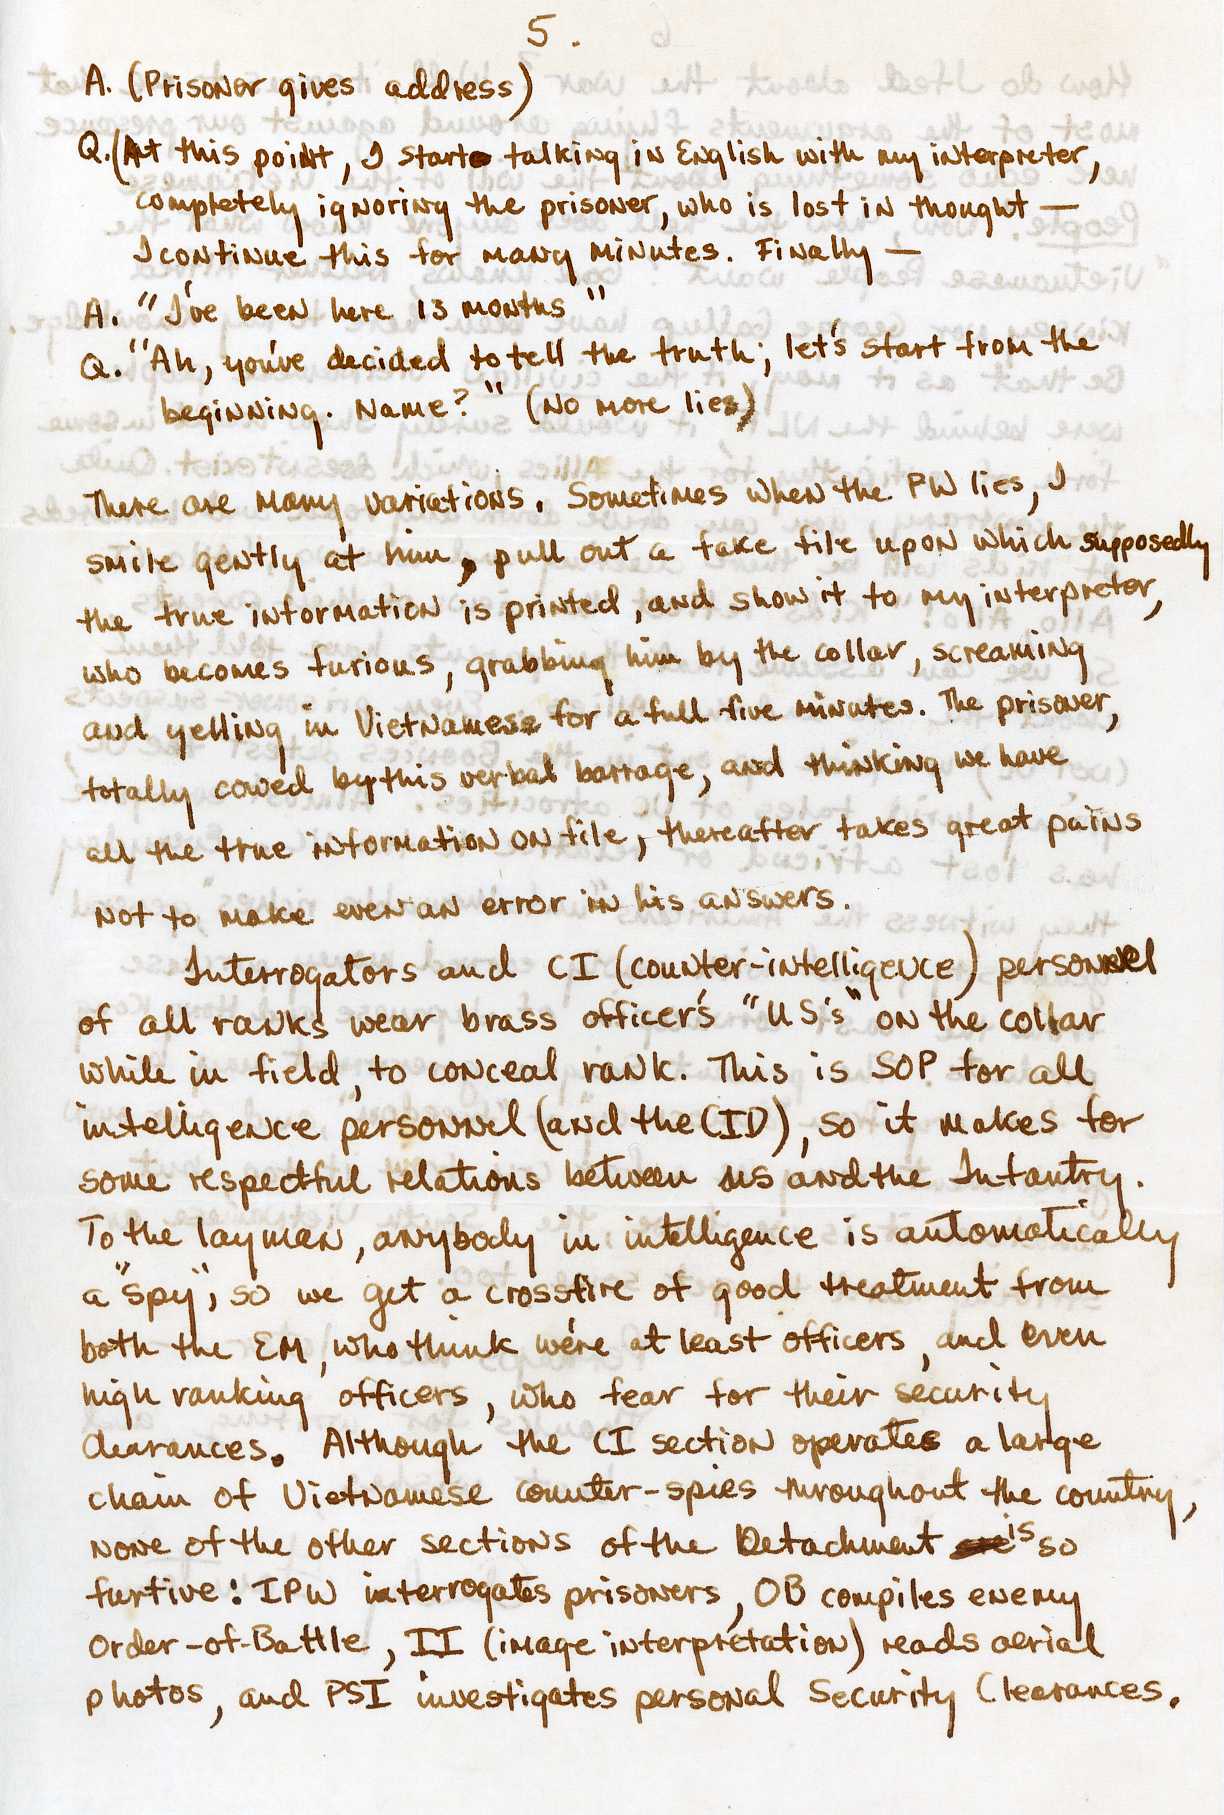 5.
A. (Prisoner gives address)
Q. (At this point, I start talking in English with my interpreter,
completely ignoring the prisoner, who is lost in thought —
I continue this for many minutes. Finally —
A. "I've been here 13 months"
Q. "Ah, you've decided to tell the truth; let's start from the
beginning. Name?" (No more lies)
There are many variations. Sometimes when the PW lies, I
smile gently at him, pull out a fake file upon which supposedly
the true information is printed, and show it to my interpreter,
who becomes furious, grabbing him by the collar, screaming
and yelling in Vietnamese for a full five minutes. The prisoner,
totally cowed by this verbal barrage, and thinking we have
all the true information on file, thereafter takes great pains
not to make even an error in his answers.
Interrogators and CI (counter-intelligence) personnel
of all ranks wear brass officer's "US's" on the collar
while in field, to conceal rank. This is SOP for all
intelligence personnel (and the CID), so it makes for
some respectful relations between us and the Infantry.
To the layman, anybody in intelligence is automatically
a "spy", so we get a crossfire of good treatment from
both the EM, who think we're at least officers, and even
high ranking officers, who fear for their security
clearances. Although the CI section operates a large
chain of Vietnamese counter-spies throughout the country,
none of the other sections of the Detachment is so
furtive: IPW interrogates prisoners, OB compiles enemy
Order-of-Battle, II (image interpretation) reads aerial
photos, and PSI investigates personal Security Clearances.